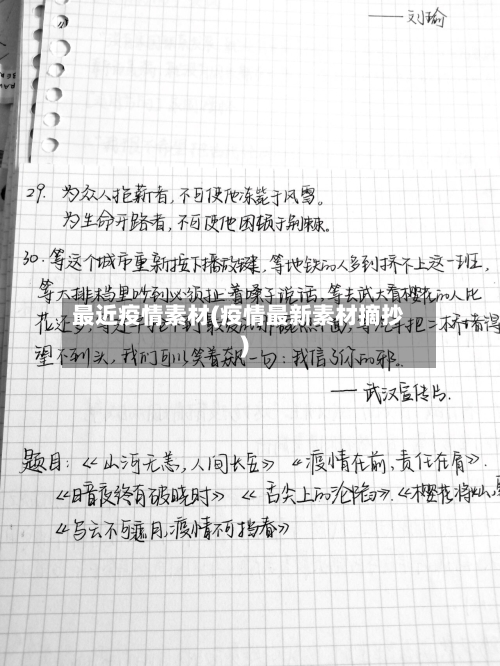 ——刘瑜
29. 为众人抱薪者,不可使他冻毙于风雪。
为生命开路者,不可使他困顿于荆棘。
30. 等这个城市重新按下播放键,等地铁的人多到挤不上这一班,
等大排档里吵到必须扯着嗓子说话,等去武大看樱花的人比
花还多,
最近疫情素材(疫情最新素材摘抄
)
望不到头,我们可以笑着飙一句:我信了你的邪。
——武汉宣传片.
题目:《山河无恙,人间长安》《疫情在前,责任在肩》.
《暗夜终有破晓时》《舌尖上的沦陷》.《樱花将灿,
《乌云不可遮月,疫情不可挡春》